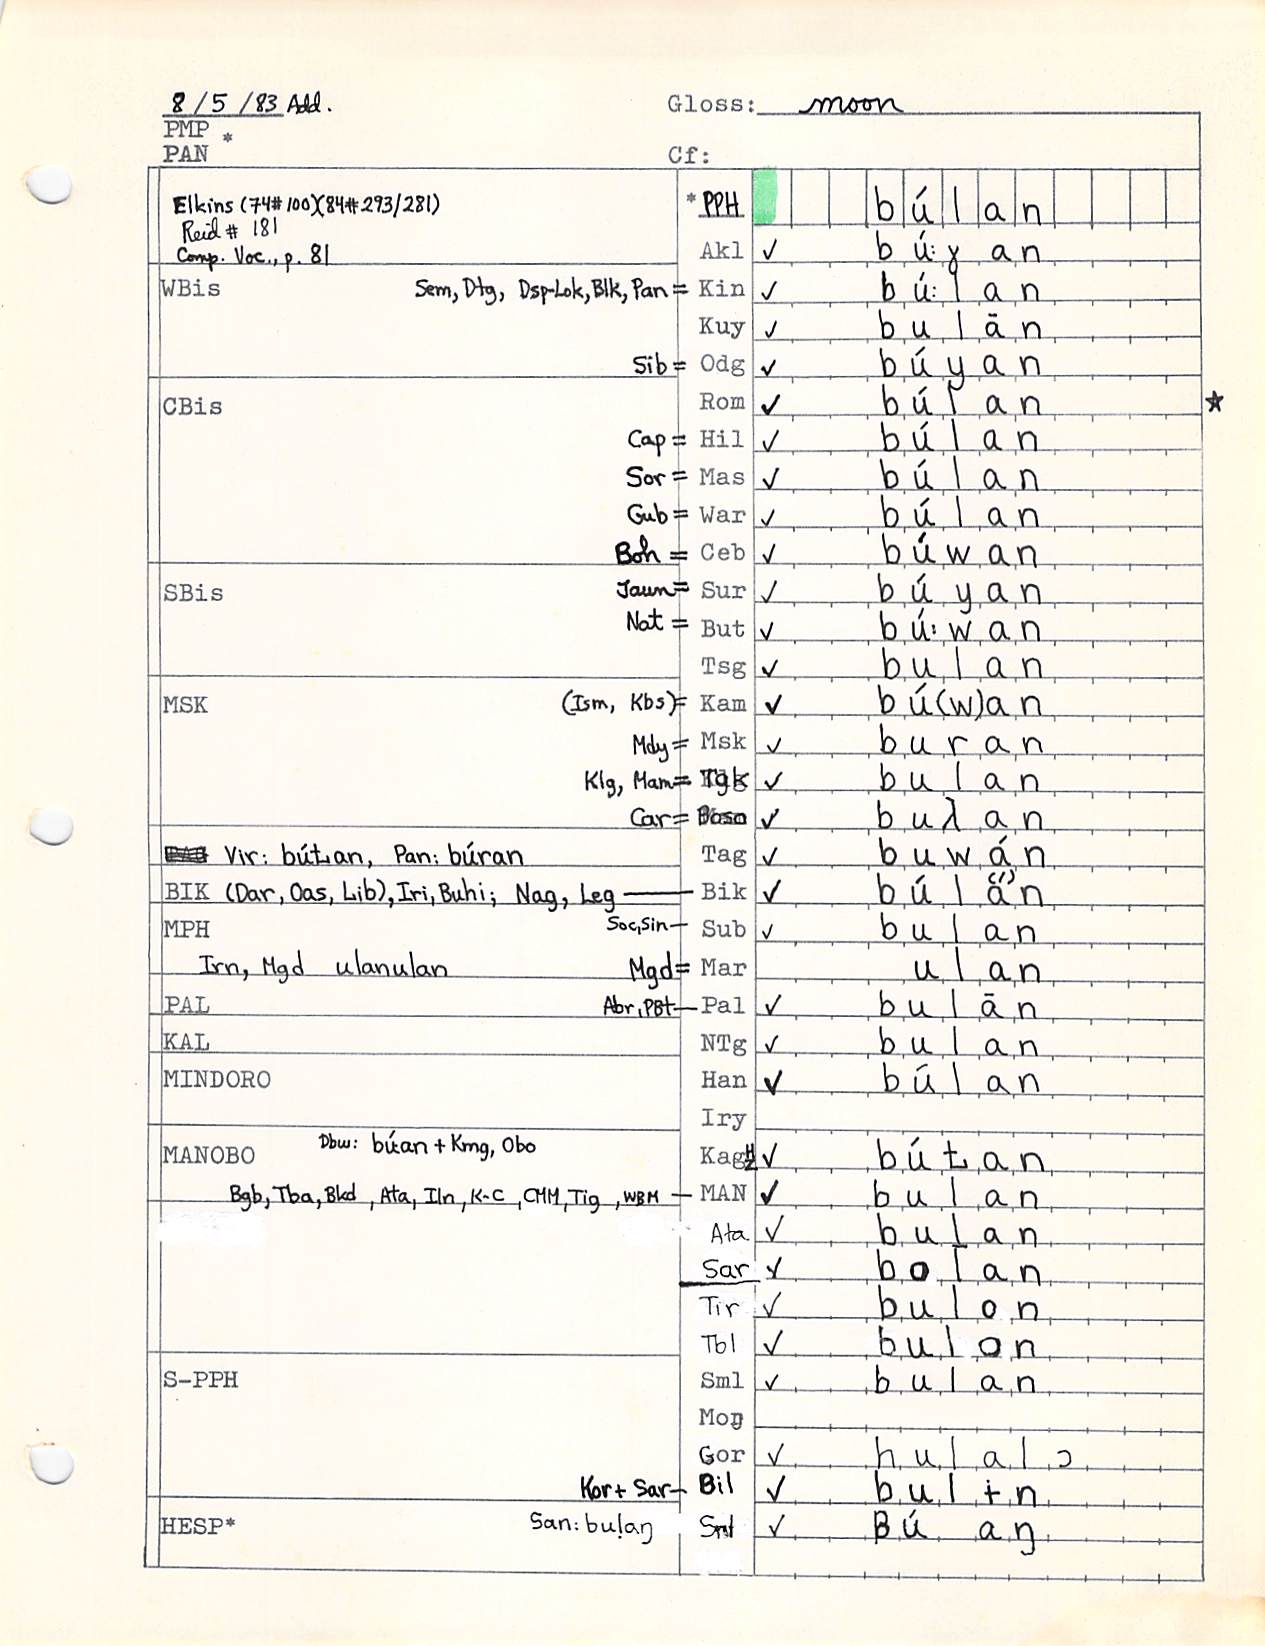 8/5/83 Add. Gloss: moon
PMP *
PAN Cf:
Elkins (74#100)(84#293/281) *PPH búlan
Reid # 181
Comp. Voc., p. 81 Akl ✓ bú:ɣan
WBis Sem, Dtg, Dsp-Lok, Blk, Pan = Kin ✓ bú:lan
Kuy ✓ bulān
Sib = Odg ✓ búyan
CBis Rom ✓ búlan ★
Cap = Hil ✓ búlan
Sor = Mas ✓ búlan
Gub = War ✓ búlan
Boh = Ceb ✓ búwan
SBis Jaun = Sur ✓ búyan
Nat = But ✓ bú:wan
Tsg ✓ bulan
MSK (Ism, Kbs) = Kam ✓ bú(w)an
Mdy = Msk ✓ buran
Klg, Mam = Tgk ✓ bulan
Car = ✓ buλan
Vir: bútan, Pan: búran Tag ✓ buwán
BIK (Dar, Oas, Lib), Iri, Buhi; Nag, Leg — Bik ✓ búlā(´)n
MPH Soc, Sin — Sub ✓ bulan
Irn, Mgd ulanulan Mgd = Mar ulan
PAL Abr, PBt — Pal ✓ bulān
KAL NTg ✓ bulan
MINDORO Han ✓ búlan
Iry
MANOBO Dbw: búan + Kmg, Obo Kag ✓ bútan
Bgb, Tba, Bkd, Ata, Iln, K-C, CMM, Tig, WBM — MAN ✓ bulan
Ata ✓ bulan
Sar ✓ bolan
Tir ✓ bulon
Tbl ✓ bulon
S-PPH Sml ✓ bulan
Moŋ
Gor ✓ hulalɔ
Kor + Sar — Bil ✓ bulɨn
HESP* San: buḷaŋ Snt ✓ Bú aŋ